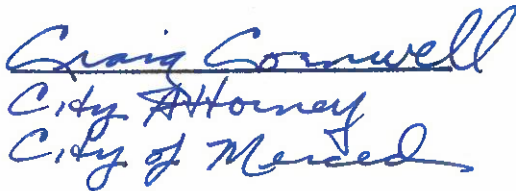 Craig Cornwell
City Attorney
City of Merced